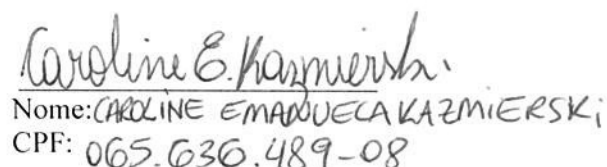 Caroline E. Kazmierski.
Nome: CAROLINE EMANUELA KAZMIERSKi
CPF: 065.636.489-08